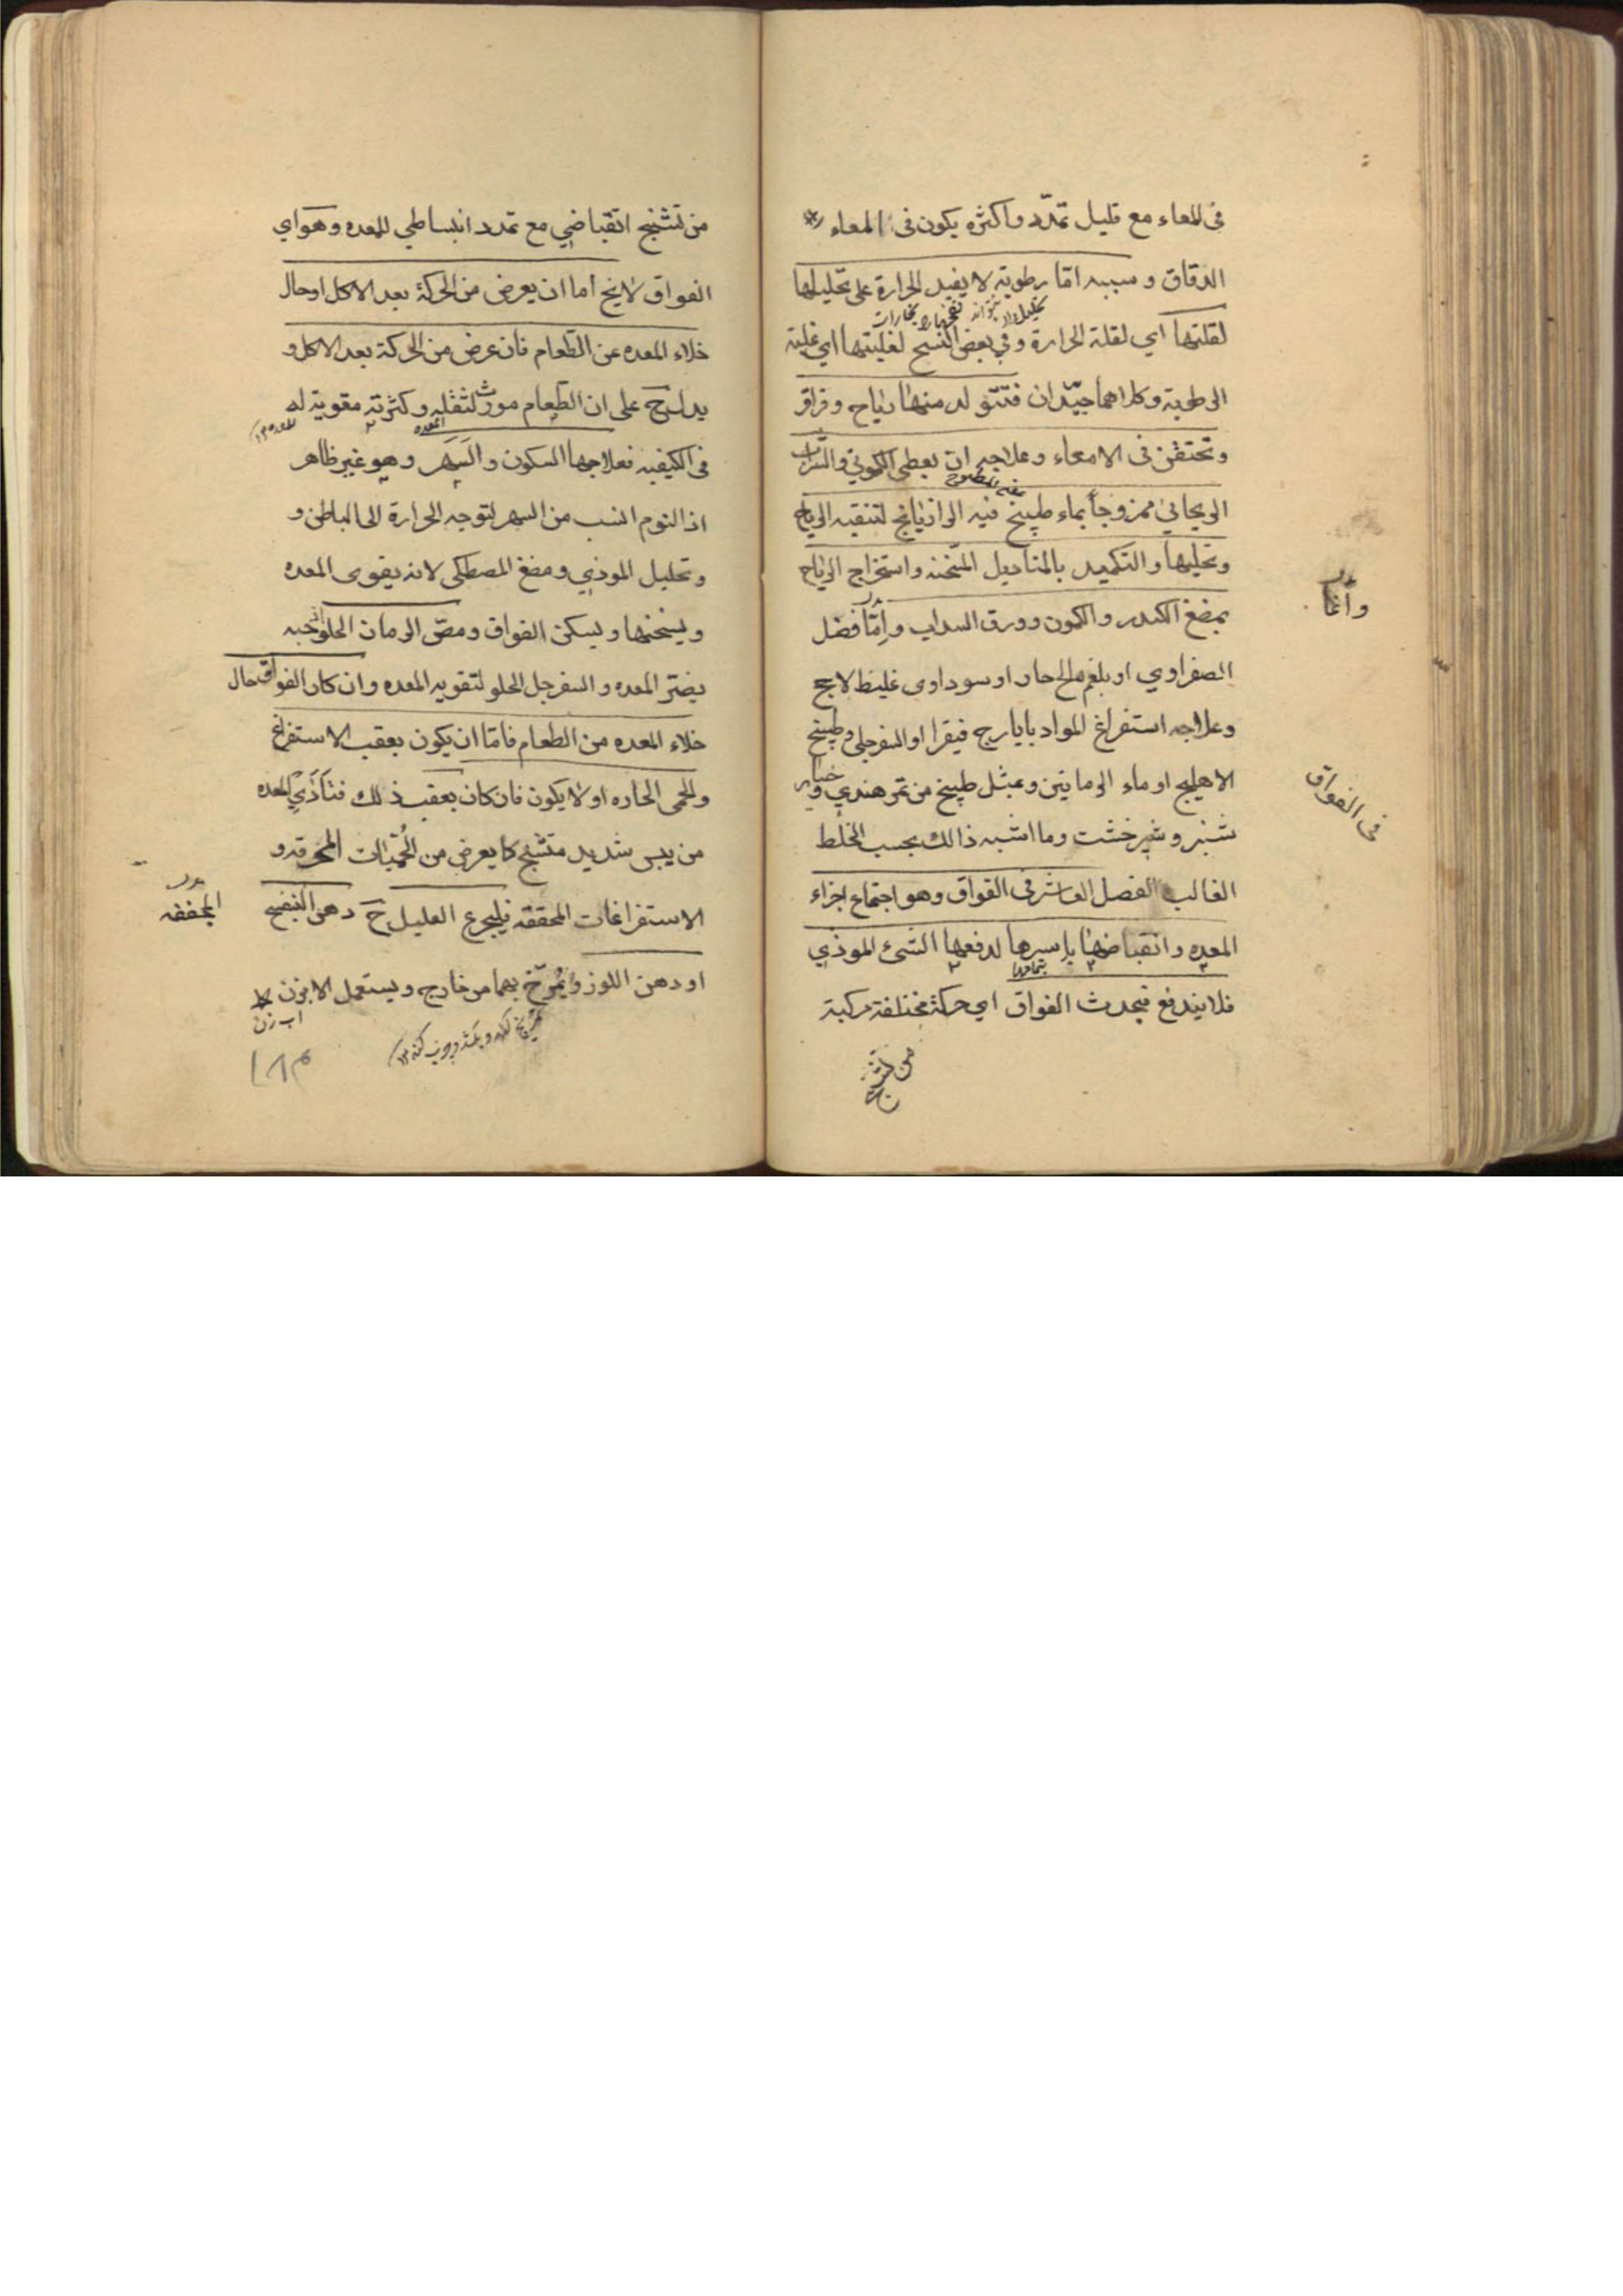 فى المعاء مع قليل تمدّد واكثره يكون فى المعاء
الدقاق وسببه امّا رطوبة لا يفيد الحرارة على تحليلها
لقلتها اي لقلة الحرارة وفي بعض النسخ لغلبتها اي غلبة
الرطوبة وكلاهما جيّدان فتتولد منها رياح وقراقر
وتحتقن فى الامعاء وعلاجه ان يعطى الكموني والشراب
الريحاني ممزوجاً بماء طبيخ فيه الرازيانج لتنقيه الرياح
وتحليلها والتكميد بالمناديل المسخنه واستخراج الرياح
بمضغ الكندر والكمون وورق السداب وامّا فضل
الصفراوي او بلغم مالح حار او سوداوى غليظ لاحج
وعلاجه استفراغ المواد بايارج فيقرا او السفرجلى وطبيخ
الاهليلج او ماء الرمانين وبمثل طبيخ من تمر هندي وخيار
شنبر وشيرخشت وما اشبه ذالك بحسب الخلط
الغالب الفصل العاشر فى الفواق وهو اجتماع اجزاء
المعده وانقباضها باسرها لدفعها الشئ الموذي
بتمامها
فلا يندفع فيحدث الفواق اي حركة مختلفة مركبة
من تشنج
وأما
فى الفواق
من تشنج انقباضي مع تمدد انبساطي للمعده وهو اي
الفواق لا يخ اما ان يعرض من الحركة بعد الاكل او حال
خلاء المعده عن الطعام فان عرض من الحركة بعد الاكل و
يدل ح على ان الطعام موذ لثقله وكثرته مقوية له
المعده
فى الكيفيه فعلاجها السكون والسهر وهو غير ظاهر
اذ النوم انسب من السهر لتوجه الحرارة الى الباطن و
وتحليل الموذي ومضغ المصطكى لانه يقوى المعده
ويسخنها ويسكن الفواق ومصّ الرمان الحلو حبه
يضرّ المعده والسفرجل الحلو لتقويه المعده وان كان الفواق حال
خلاء المعده من الطعام فامّا ان يكون بعقب الاستفراغ
والحمى الحاره او لا يكون فان كان بعقب ذلك فتأذي المعده
من يبس شديد متشنج كما يعرض من الحُمّيات المحرقه و
الاستفراغات المحققه فليجرع العليل ح دهن البنفسج
المجففه
او دهن اللوز ويُمرّخ بهما من خارج ويستعمل الابزن
اب زن